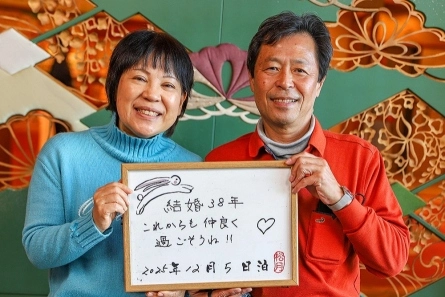 結婚38年
これからも仲良く
過ごそうね!!
2025年12月5日泊